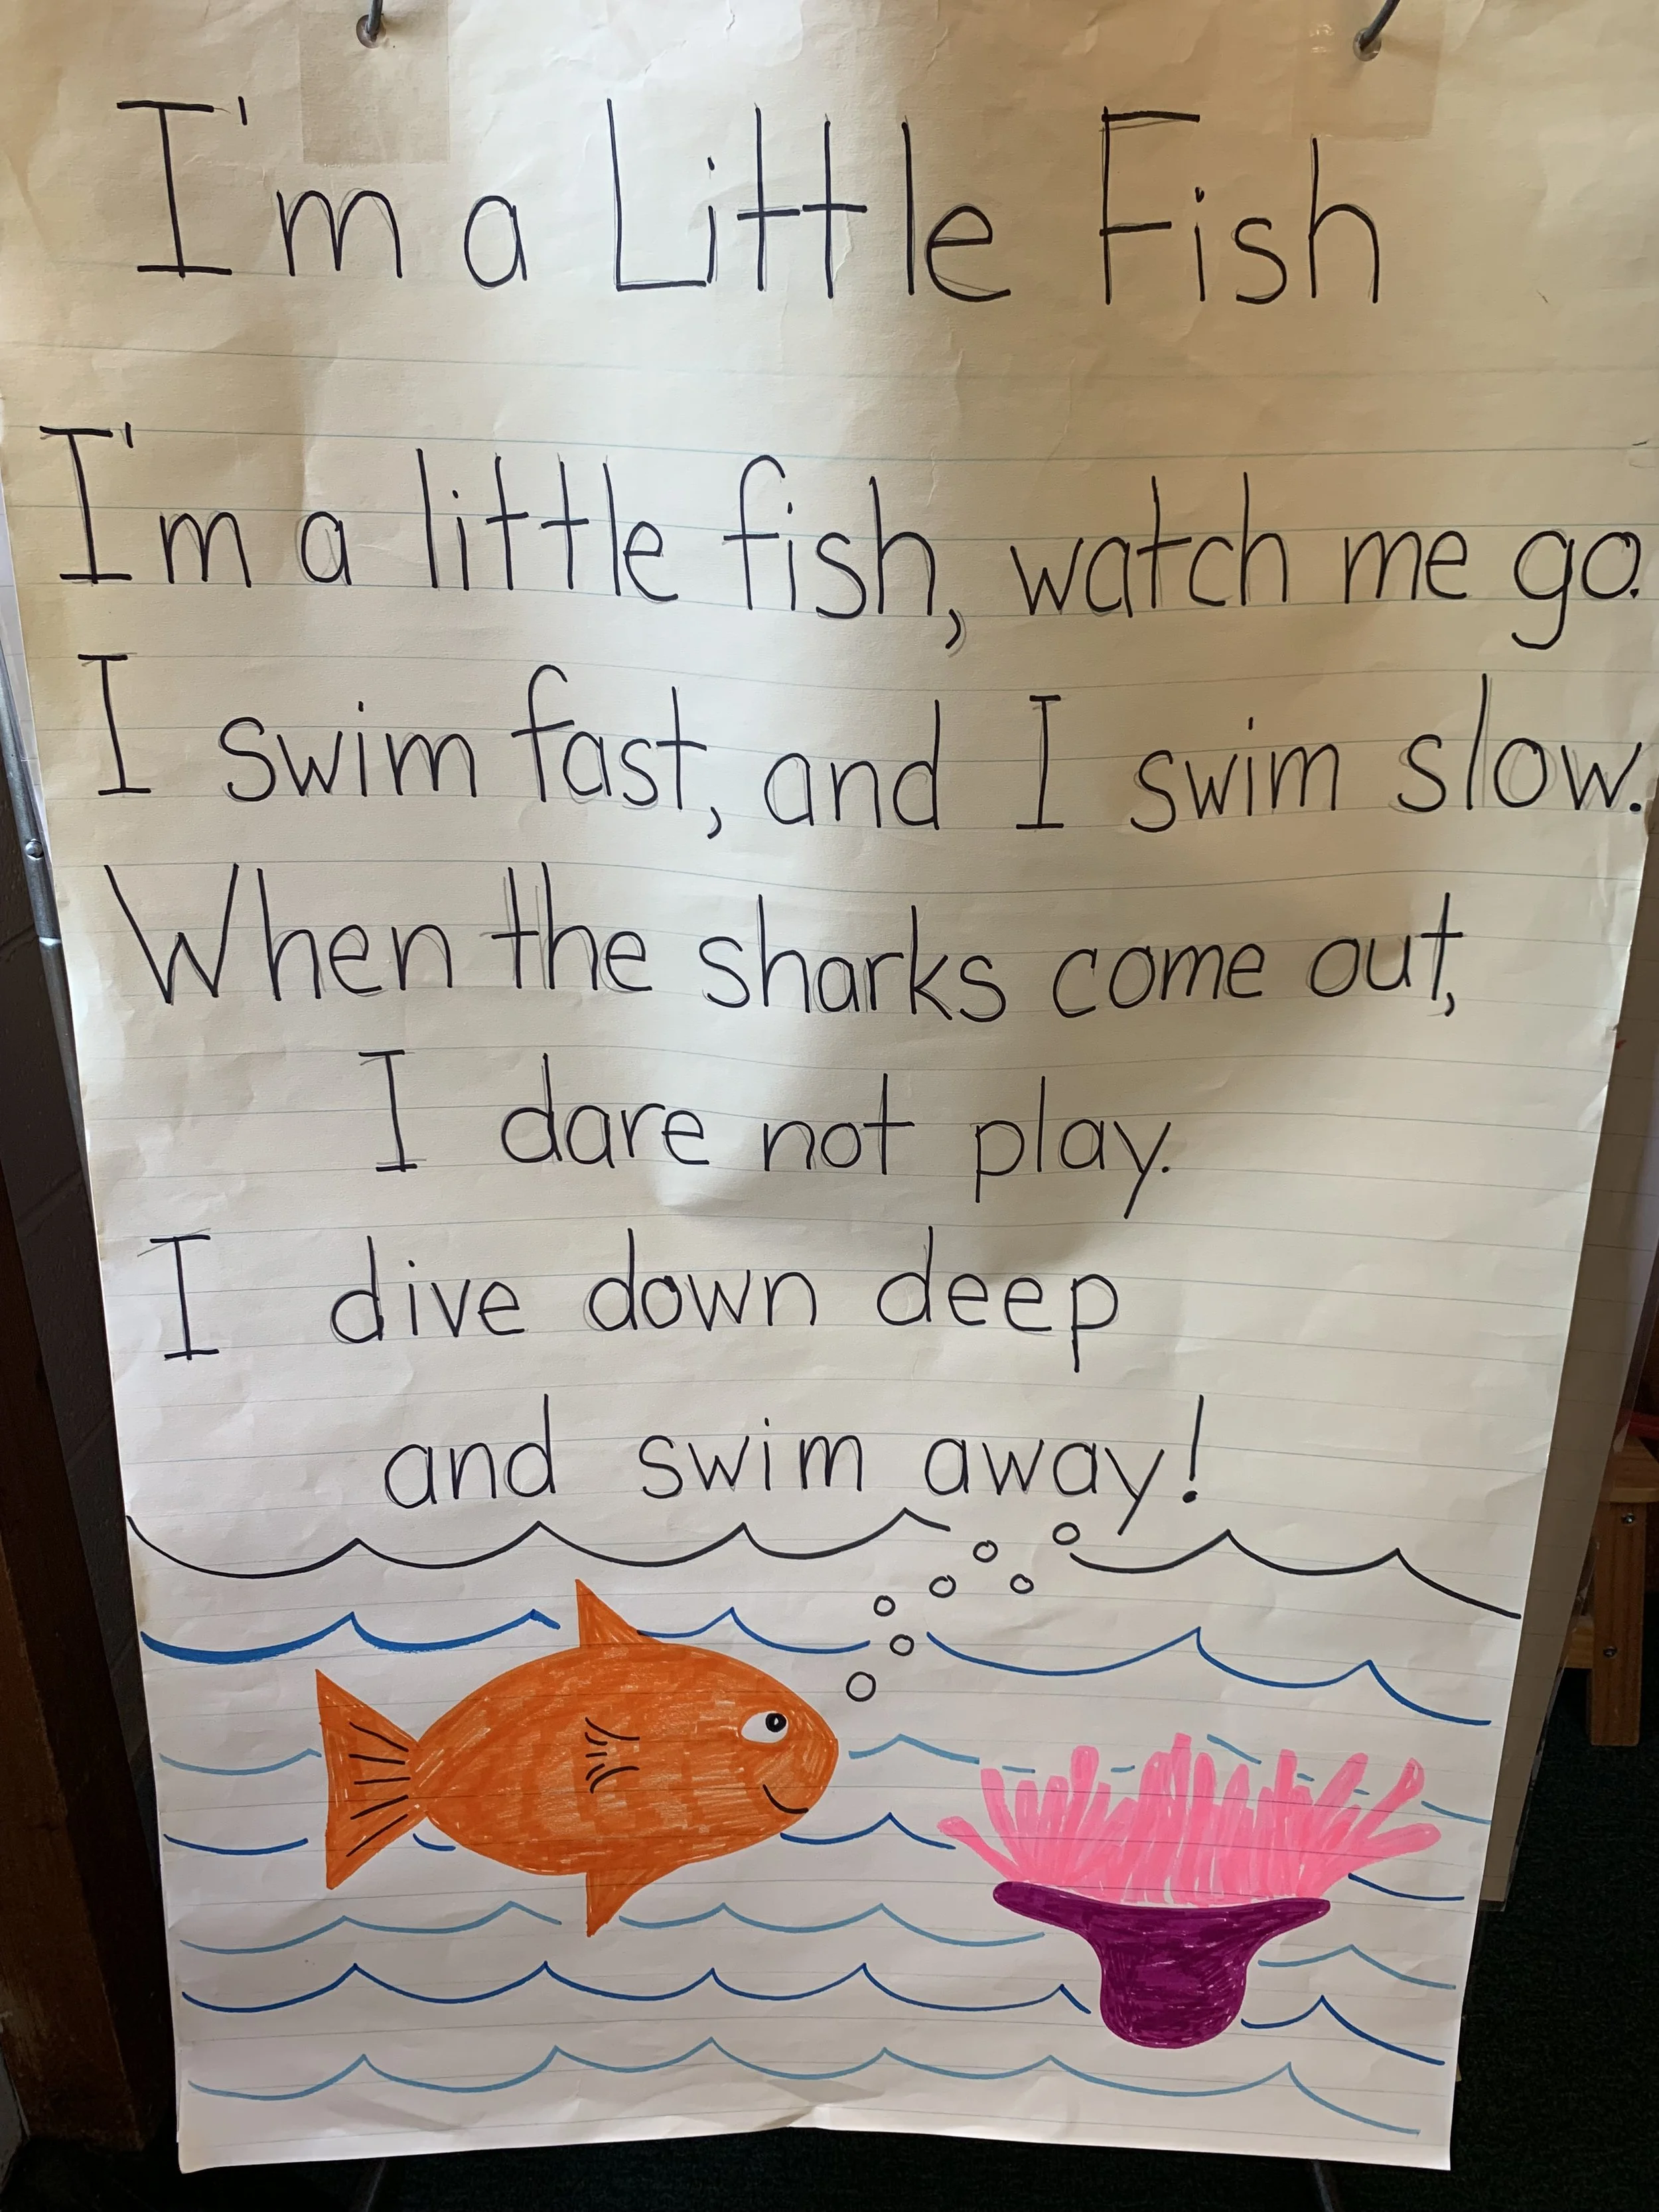 I'm a Little Fish
I'm a little fish, watch me go.
I swim fast, and I swim slow.
When the sharks come out,
I dare not play.
I dive down deep
and swim away!